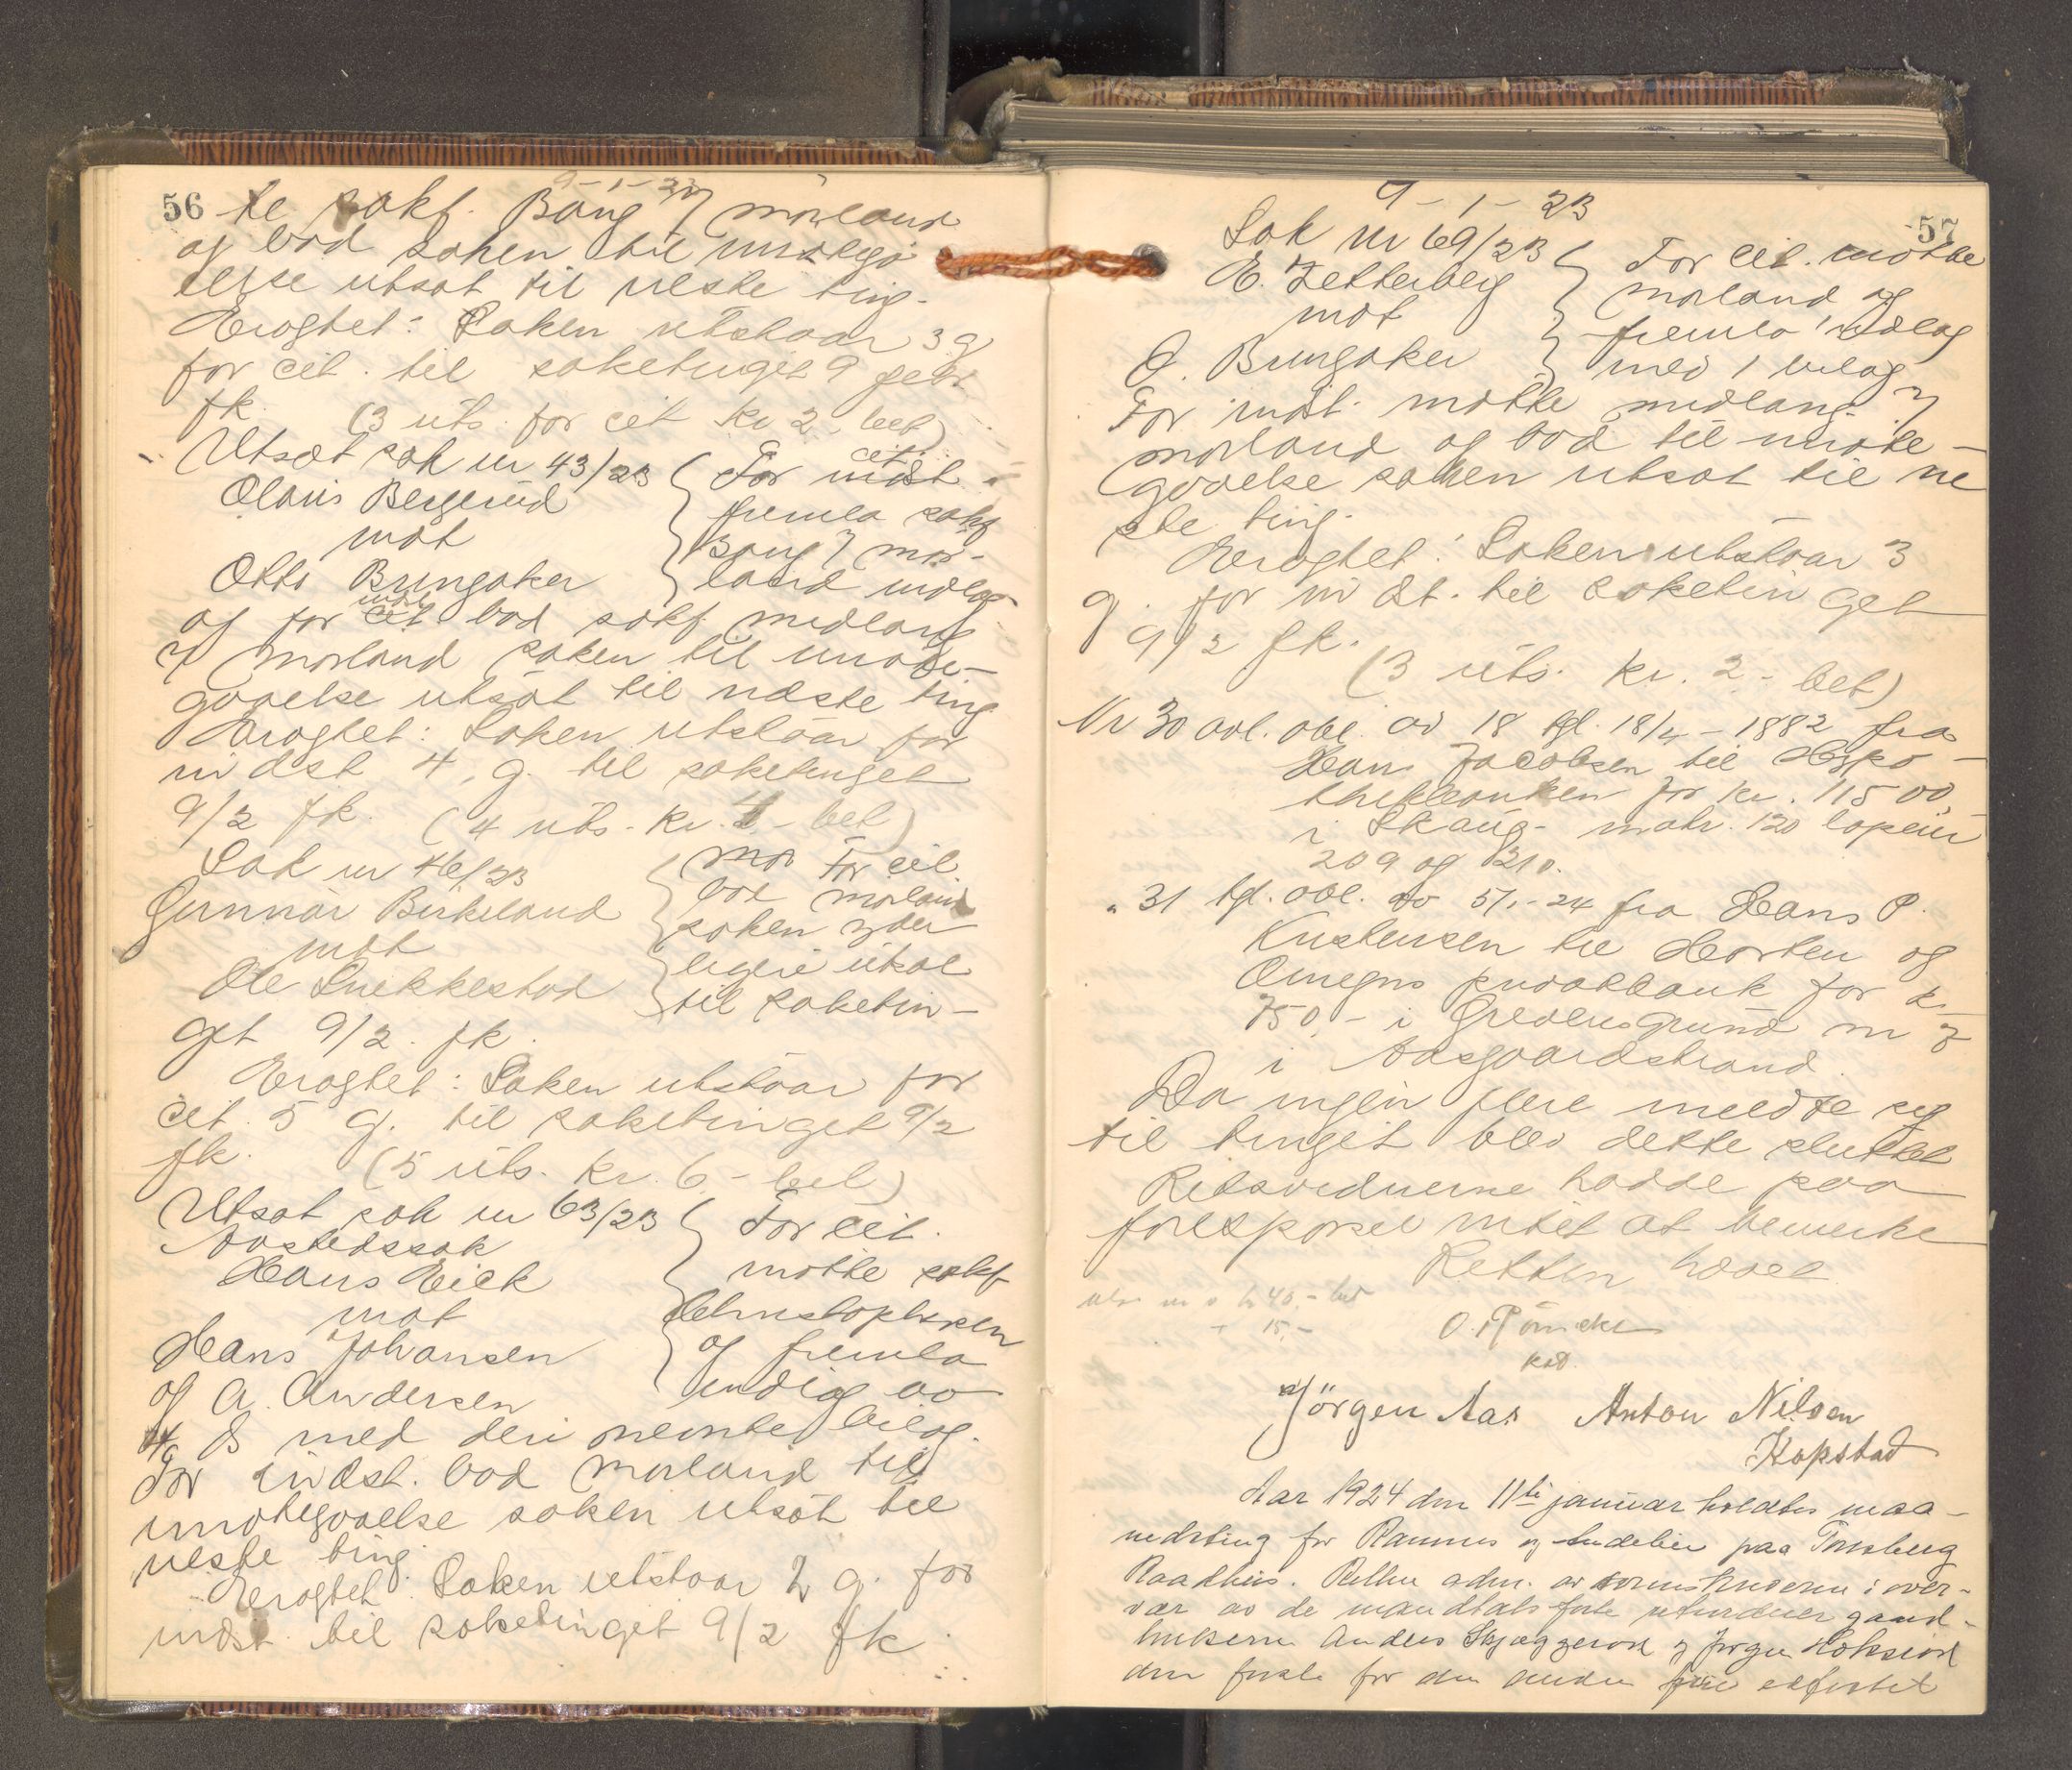 56
9-1-23
te sakf. Bang ɔ: morland
og bad saken til imøtegø
else utsat til neste ting.
Eragtet: Saken utstaar 3 g
for cit. til saketinget 9 febr
fk. (3 uts. for cit kr 2. bet)
Utsat sak nr 43/23
Olaus Bergerud
mot
Otto Brungaker
For cit.
fremla sakf
Bang ɔ: mor-
land indlæg
og for indst bad sakf midlang
ɔ: morland saken til imøte-
gaaelse utsat til næste ting
Eragtet: Saken utstaar for
indst 4. g. til saketinget
9/2 fk. (4 uts. kr. 4 - bet)
Sak nr 46/23
Gunnar Birkeland
mot
Ole Snekkestad
For cit.
bad morland
saken yder
ligere utsat
til saketin-
get 9/2. fk.
Eragtet: Saken utstaar for
cit. 5 g. til saketinget 9/2
fk. (5 uts. kr. 6 - bet)
Utsat sak nr 63/23
Aastedssak
Hans Eick
mot
Hans Johansen
og A. Andersen
For cit.
møtte sakf
Christophersen
og fremla
indlæg av
d s med deri nevnte bilag.
For indst. bad morland til
imøtegaaelse saken utsat til
neste ting.
Eragtet: Saken utstaar 2 g. for
indst. til saketinget 9/2 fk.
57
9-1-23
Sak nr 69/23
E. Zetterberg
mot
O. Brungaker
For cit. møtte
morland og
fremla indlæg
med 1 bilag
For indst. møtte midlang ɔ:
morland og bad til imøte-
gaaelse saken utsat til ne
ste ting.
Eragtet: Saken utstaar 3
g. for indst. til saketinget
9/2 fk.
(3 uts. kr. 2 - bet)
Nr 30 avl. obl. av 18 tgl. 18/4 - 1882 fra
Hans Jacobsen til Hypo-
thekbanken for kr. 11500,
i Skaug- matr. 120 løpenr
209 og 210.
" 31 tgl. obl. av 5/1-24 fra Hans P.
Kristensen til Horten og
Omegns privatbank for kr
750,- i Grevensgrund nr 3
i Aasgaardstrand.
Da ingen flere meldte seg
til tinget blev dette sluttet
Retsvidnerne hadde paa
forespørsel intet at bemerke
Retten hævet
kr 40,- bet
15,-
O. Tönicke
kst.
Jörgen Aas Anton Nilsen
Kopstad
Aar 1924 den 11te januar holdtes maa-
nedsting for Ramnes og Andebu paa Tønsberg
Raadhus. Retten adm. av sorenskriveren i over-
vær av de mandtalsførte retsvidner gaard-
brukerne Anders Skjæggerød og Jørgen Høksrød
den første for den anden fire edfestet